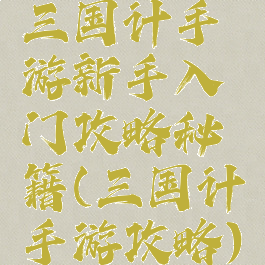 三国计手
游新手入
门攻略秘
籍(三国计
手游攻略)